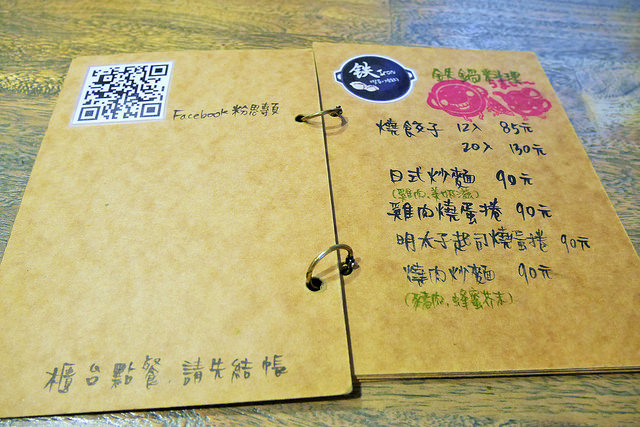 Facebook 粉思頁
櫃台點餐，請先結帳
鉄 Iron
鉄鍋料理
燒餃子 12入 85元
20入 130元
日式炒麵 90元
雞肉燒蛋捲 90元
明太子起司燒蛋捲 90元
燒肉炒麵 90元
(豬肉,蜂蜜芥末)